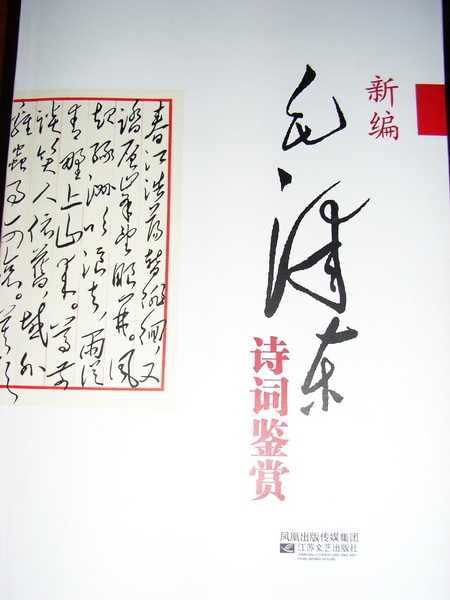 新编
毛泽东
诗词鉴赏
春江浩蕩暫徘徊,又
踏層峰望眼開。風
起綠洲吹浪去,雨從
青野上山來。尊前
談笑人依舊,域外
雞蟲事可哀。莫
凤凰出版传媒集团
江苏文艺出版社
JIANGSU LITERATURE AND ART
PUBLISHING HOUSE